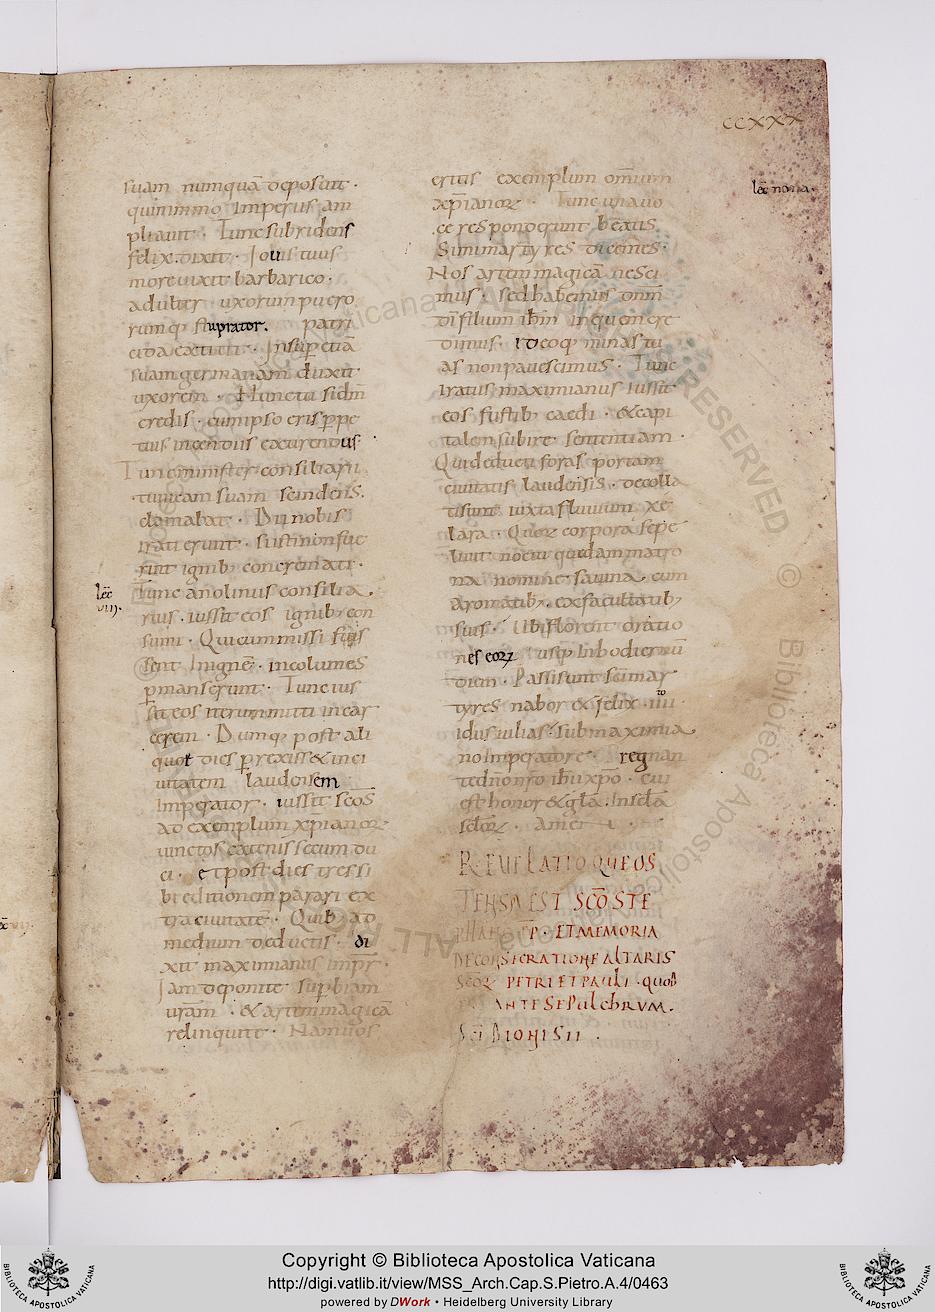 CCXXX
suam numquā deposuit·
quinimmo imperius am
pliauit· Tunc subridens
felix·dixit· Iouis tuus
more uixit barbarico·
adulter· uxorum puero
rumq; stuprator· patri
cida extitit· Insup etiā
suam germanam duxit
uxorem· Nunc tu si dm̄
credis· cum ipso eris ppe
tuis incendiis exurendus·
Tunc minister consiliarii
tunicam suam scindens·
clamabat· Dii nobis
irati erunt· si isti non fue
rint ignib; concremati·
lec̄
viij·
Tunc anolinus consilia
rius· iussit eos ignib; con
sumi· Qui cum missi fuis
sent in ignē· incolumes
pmanserunt· Tunc ius
sit eos iterum mitti in car
cerem· Dumq; post ali
quot dies prexiss& in ci
uitatem laudensem
Imperator· iussit sc̄os
ad exemplum xp̄ianoꝝ
uinctos catenis secum du
ci· et post dies tres si
bi editionem parari ex
tra ciuitatē· Quib; ad
medium deductis· di
xit maximianus impr̄·
Iam deponite supbiam
uram̄· & artem magicā
relinquite· Nam uos
lec̄ nona·
eritis exemplum omnium
xp̄ianoꝝ· Tunc una uo
ce responderunt beatis
simi martyres dicentes·
Nos artem magicā nesci
mus· sed habemus dnm̄
dī filium ih̄m in quem cre
dimus· ideoq; minas tu
as non pauescimus· Tunc
iratus maximianus iussit
eos fustib; caedi· & capi
talem subire sententiam·
Qui deducti foras portam
ciuitatis laudensis· decolla
ti sunt iuxta fluuium xe
lara· Quoꝝ corpora sepe
liuit noctu quedam matro
na nomine sauina· cum
aromatib; ex facultatib;
suis· Ubi florent oratio
nes eoꝝ usq; in hodiernū
diem· Passi sunt sc̄i mar
tyres nabor & felix· iiii
to
idus iulias· sub maximia
no imperatore· regnan
te dn̄o nr̄o ih̄u xp̄o· cui
est honor & gla· In sc̄la
sc̄loꝝ· amen·
REUELATIO QUE OS
TENSA EST SC̄O STE
PHANO P̄P· ET MEMORIA
DE CONSECRATIONE ALTARIS
SCOꝝ PETRI ET PAULI· quod
ANTE SEPULCHRUM·
SC̄I DIONISII·
Copyright © Biblioteca Apostolica Vaticana
http://digi.vatlib.it/view/MSS_Arch.Cap.S.Pietro.A.4/0463
powered by DWork • Heidelberg University Library